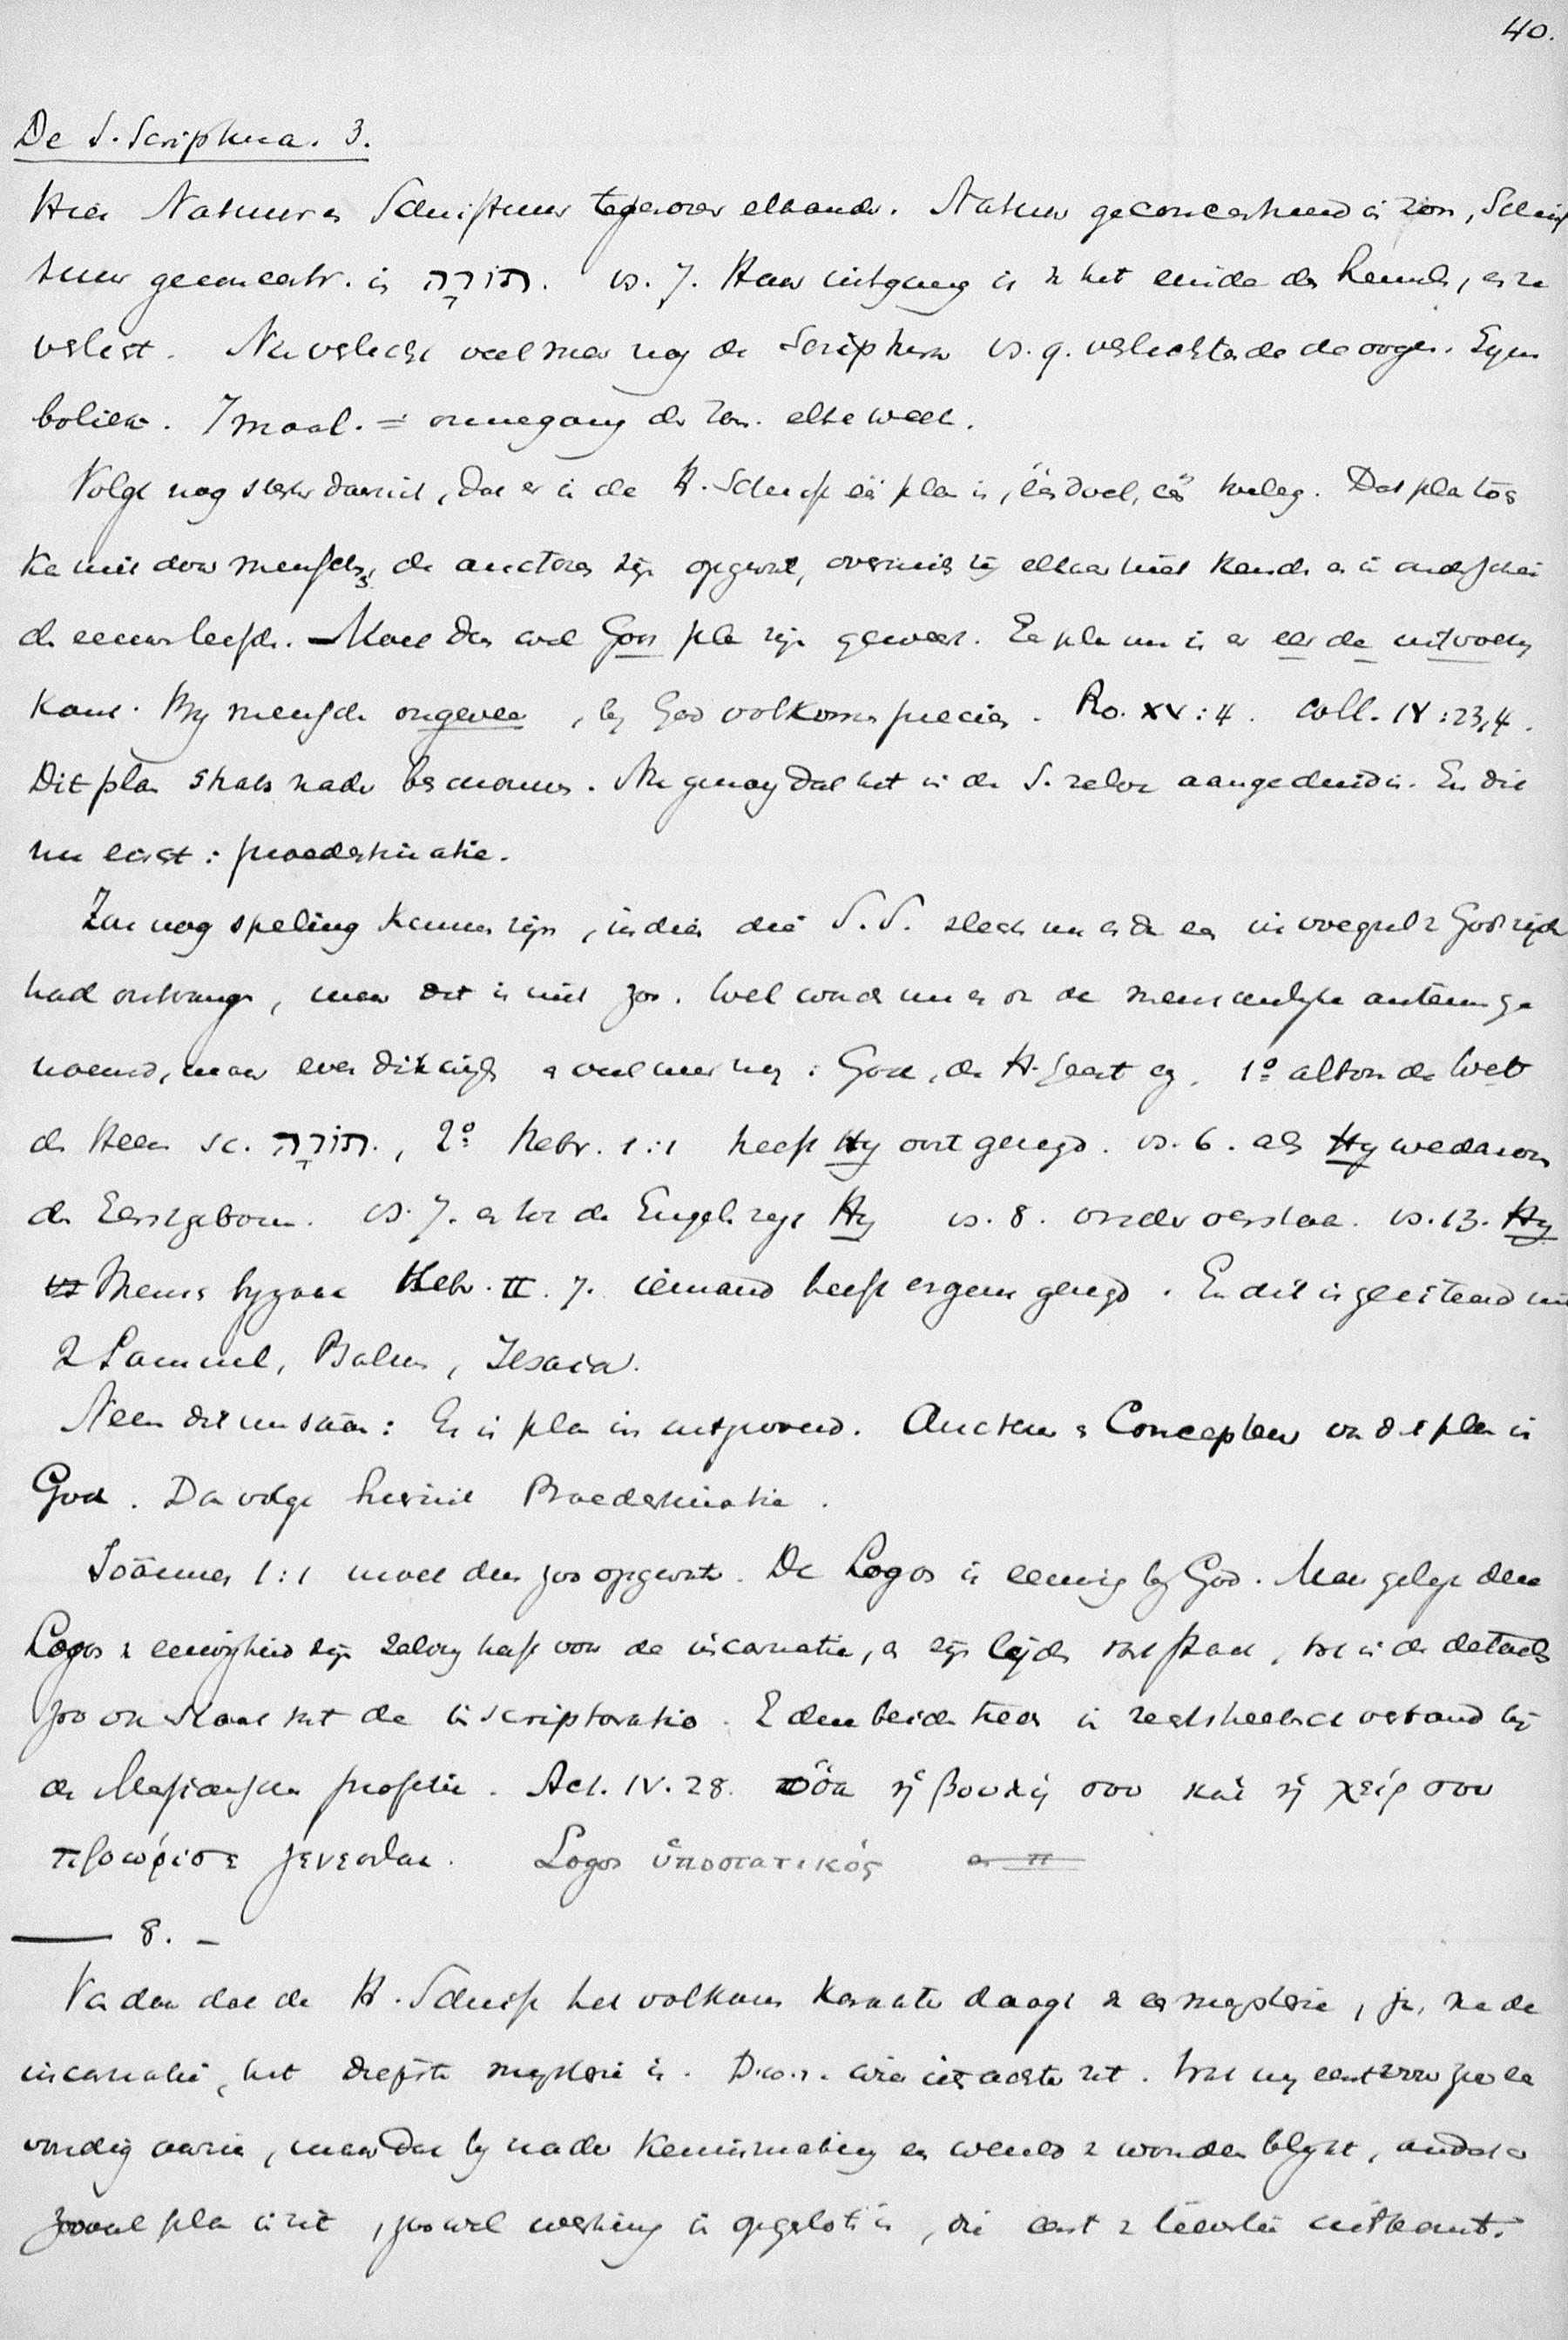 40.
De S. Scriptura. 3.
Hier Natuur en Schriftuur tegenover elkander. Natuur geconcentreerd in zon, Schrif
tuur geconcentr. in תּוֹרָה. vs. 7. Haar uitgang is v het einde der hemels, en ze
verlicht. Nu verlicht veel meer nog de Scriptura vs. 9. verlichtende de oogen. Sym
boliek. 7 maal. = ommegang der zon. elke week.
Volgt nog sterker daaruit, dat er in de H. Schrift één plan is, één doel, één toeleg. Dat plan
kan niet door menschen, de auctores zijn opgevat, overmits zij elkaar niet kenden en in onderschei
den eeuwen leefden. Moet dus wel Gods plan zijn geweest. Een plan nu is er eer de uitvoering
komt. By menschen ongeveer, by God volkomen precies. Ro. XV:4. coll. IV:23,4.
Dit plan straks nader besproken. Nu genoeg dat het in de S. zelve aangeduid is. En dit
nu eischt: praedestinatie.
Zou nog speling kunnen zijn, indien die S.S. slechts nu en dan een invoegsel v Gods zijde
had ontvangen, maar dit is niet zoo. Wel wordt nu en dan de menschelyke auteur ge
noemd, maar even dikwijls en veel meer nog: God, de H. Geest zy. 1º altoos de Wet
des Heeren sc. תּוֹרָה, 2º Hebr. 1:1 heeft Hy ooit gezegd. vs. 6. als Hy wederom
den Eerstgeboren. vs. 7. en tot de Engelen zegt Hy vs. 8. onder verstaan. vs. 13. Hy
Neem hyzone Hebr. II. 7. iemand heeft ergens gezegd. En dit is geciteerd uit
2 Samuel, Psalmen, Jesaia.
Neem dit nu saam: Er is plan in uitgevoerd. Auctor en Concepteur van dit plan is
God. Dan volgt hieruit Praedestinatie.
Joännes 1:1 moet dus zoo opgevat. De Logos is eeuwig by God. Maar gelyk deze
Logos v eeuwigheid zijn had voor de incarnatie, en zijn lijden vast staat, tot in de details
zoo ook staat het de inscripturatio. En deze beiden treden in rechtstreeksch verband bij
de Messiaansche profetie. Act. IV. 28. ὅσα ἡ βουλή σου καὶ ἡ χείρ σου
προώρισε γενεσθαι. Logos ὑποστατικός
— 8. –
Van daar dat de H. Schrift het volkomen karakter draagt v een mysterie, ja, na de
incarnatie, het diepste mysterie is. D.w.z. iets achter zit. Wat my eerst zoo
vondig, maar dat by nader kennismaking een wereld v wonderen blykt, omdat er
zooveel plan in zit, zooveel werking in opgesloten is, die eerst v uitkomt.